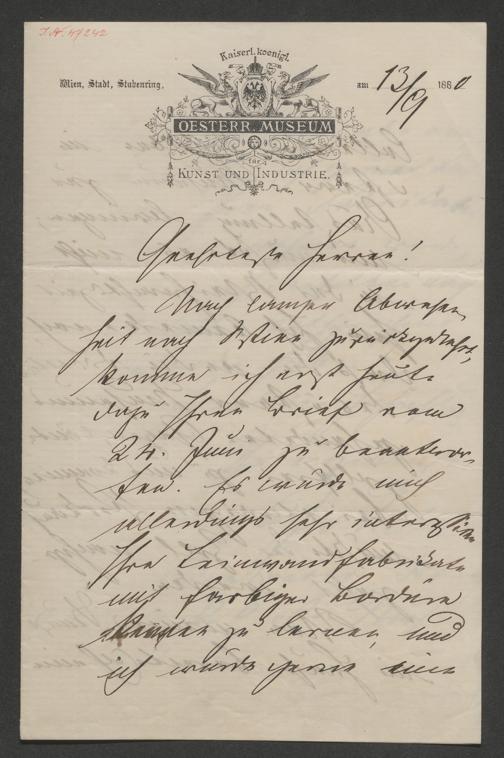 J.N. 47242
Kaiserl. koenigl.
Wien, Stadt, Stubenring.
am 13/9 1880
OESTERR. MUSEUM
FÜR
KUNST UND INDUSTRIE.
Geehrteste Herren!
Nach langer Abwesen-
heit nach Wien zurückgekehrt,
komme ich erst heute
dazu Ihren Brief vom
24. Juni zu beantwor-
ten. Es würde mich
allerdings sehr interessiren
Ihre Leinwandfabrikate
mit farbiger Bordüre
kennen zu lernen, und
ich würde gerne eine